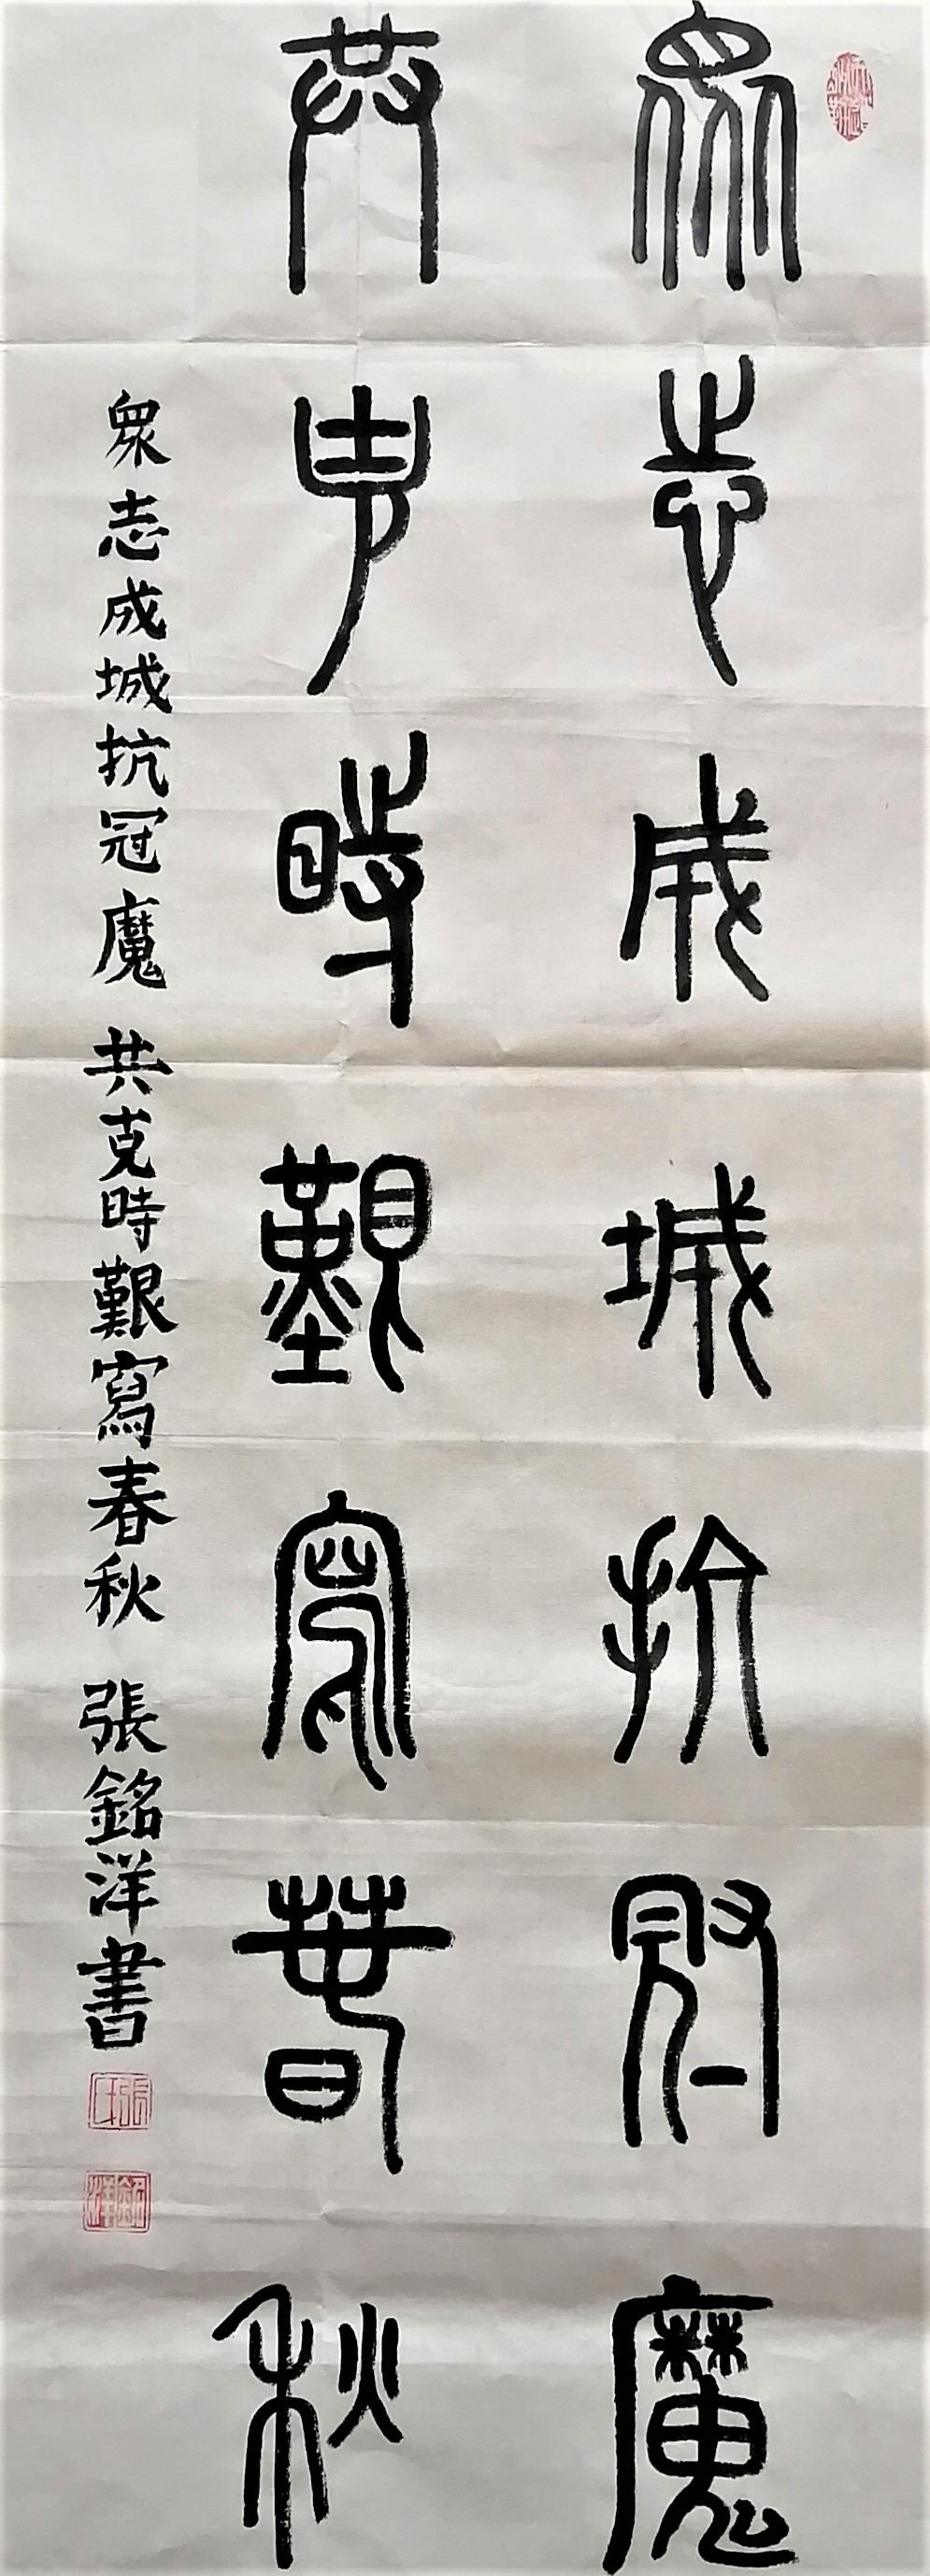 眾志成城抗冠魔
共克時艱寫春秋
眾志成城抗冠魔 共克時艱寫春秋 張銘洋書
張氏
銘洋